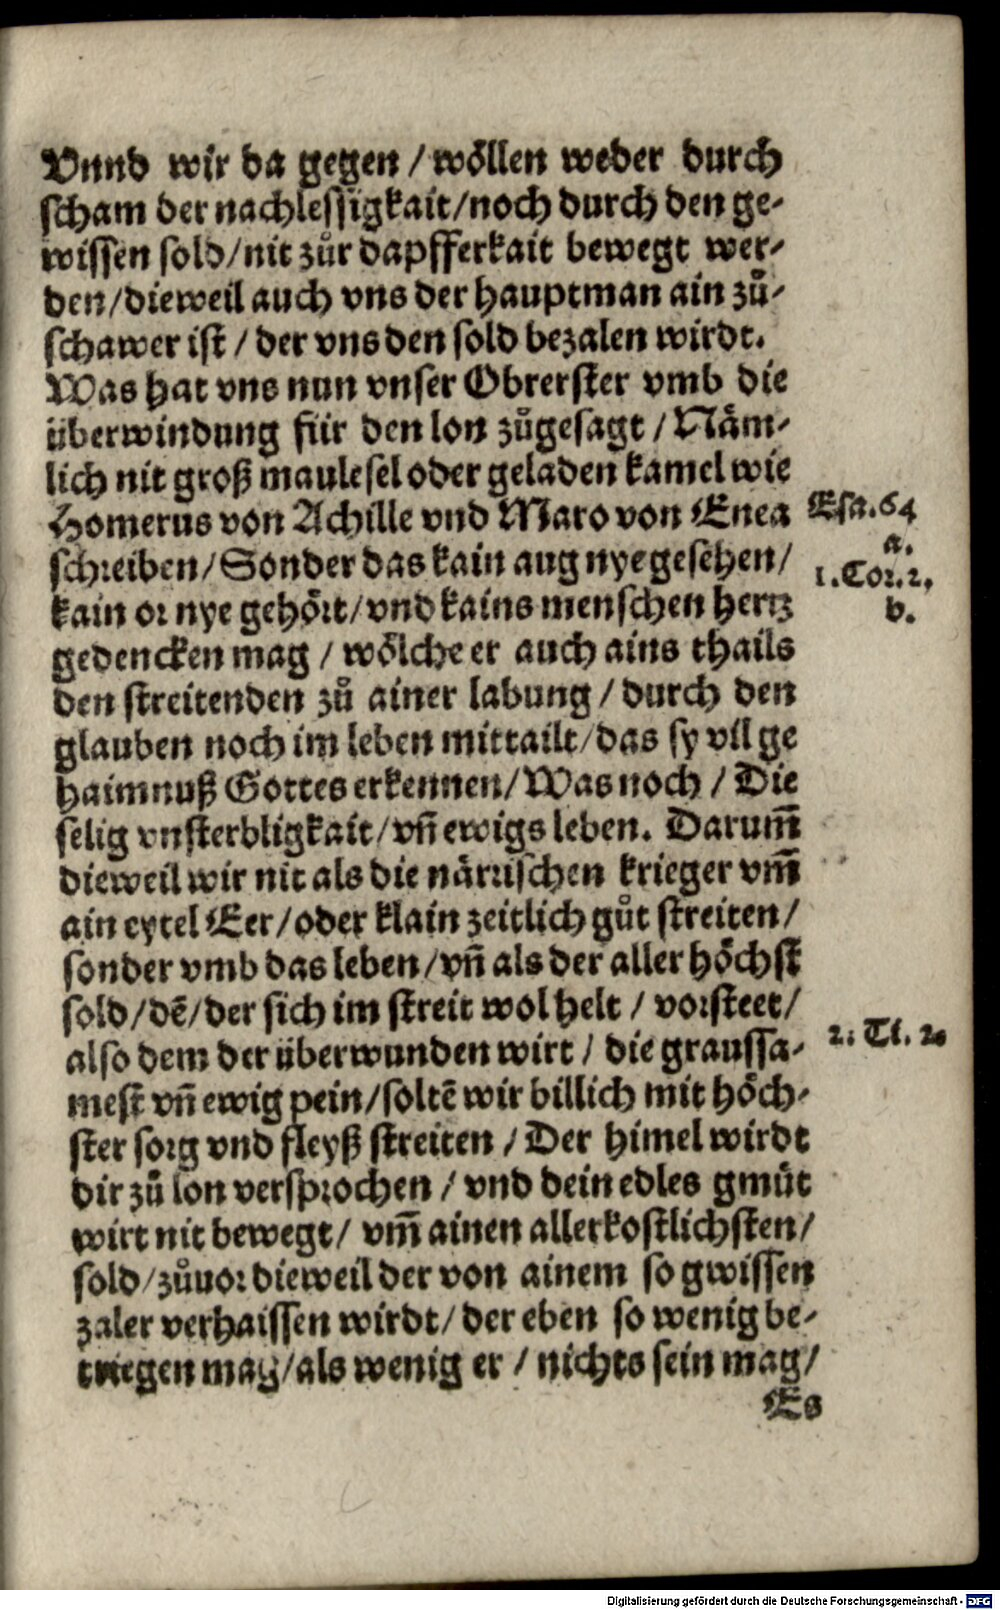 Vnnd wir da gegen / wöllen weder durch
scham der nachlessigkait/noch durch den ge-
wissen sold/nit zůr dapfferkait bewegt wer-
den/dieweil auch vns der hauptman ain zů-
schawer ist / der vns den sold bezalen wirdt.
Was hat vns nun vnser Obrerster vmb die
überwindung für den lon zůgesagt / Näm-
lich nit groß maulesel oder geladen kamel wie
Homerus von Achille vnd Maro von Enea
Esa.64
a.
schreiben/Sonder das kain aug nye gesehen/
1.Cor.2,
b.
kain or nye gehört/vnd kains menschen hertz
gedencken mag / wölche er auch ains thails
den streitenden zů ainer labung / durch den
glauben noch im leben mittailt/das sy vil ge
haimnuß Gottes erkennen/Was noch / Die
selig vnsterbligkait/vñ ewigs leben. Darum̃
dieweil wir nit als die närrischen krieger vm̃
ain eytel Eer/oder klain zeitlich gůt streiten/
sonder vmb das leben/vñ als der aller höchst
sold/dē/der sich im streit wol helt / vorsteet/
also dem der überwunden wirt / die graussa-
2. Ti. 2.
mest vñ ewig pein/soltē wir billich mit höch-
ster sorg vnd fleyß streiten / Der himel wirdt
dir zů lon versprochen / vnd dein edles gmüt
wirt nit bewegt/ vm̃ ainen allerkostlichsten/
sold/zůuor dieweil der von ainem so gwissen
zaler verhaissen wirdt/ der eben so wenig be-
triegen mag/als wenig er / nichts sein mag/
Es
Digitalisierung gefördert durch die Deutsche Forschungsgemeinschaft - DFG